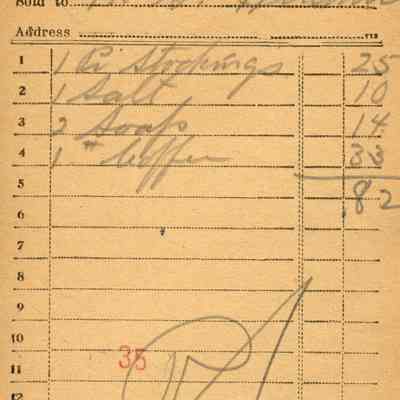 Sold to
Address
1 1 Pr Stockings 25
2 1 Salt 10
3 2 Soaps 14
4 1 # Coffee 33
5 .82
6
7
8
9
10
35
11
12